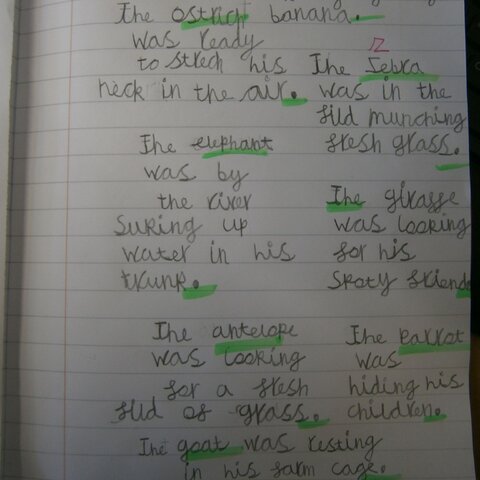 The ostrich
was ready
to strech his
neck in the air.
The elephant
was by
the river
suking up
water in his
trunk.
The antelope
was looking
for a fresh
fild of grass.
banana.
Z
The Jebra
was in the
fild munching
fresh grass.
The giraffe
was looking
for his
spoty friends
The parrot
was
hiding his
children.
The goat was resting
in his farm cage.